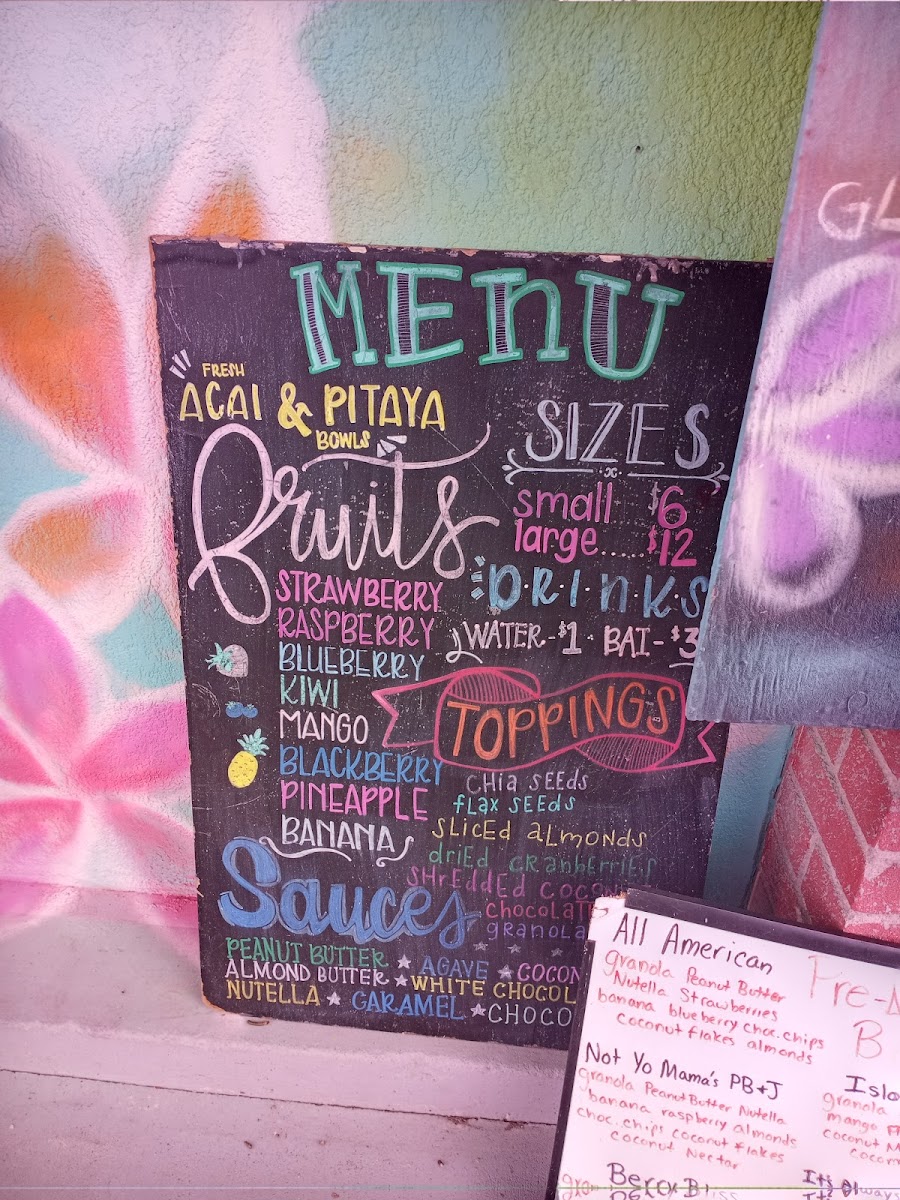 MENU
FRESH
ACAI & PITAYA
BOWLS
fruits
STRAWBERRY
RASPBERRY
BLUEBERRY
KIWI
MANGO
BLACKBERRY
PINEAPPLE
BANANA
SIZES
small $6
large..... $12
D·R·I·N·K·S
WATER-$1 · BAI-$3
TOPPINGS
CHIA SEEDS
flax SEEDS
SLICED ALMONDS
dried CRANBERRIES
SHREDDED COCON
chocolate
granola
Sauces
PEANUT BUTTER ★ AGAVE ★ COCON
ALMOND BUTTER ★ WHITE CHOCOL
NUTELLA ★ CARAMEL ★ CHOCO
GL
All American
granola Peanut Butter
Nutella Strawberries
banana blueberry choc.chips
coconut flakes almonds
Not Yo Mama's PB+J
granola Peanut Butter Nutella
banana raspberry almonds
choc.chips coconut flakes
coconut Nectar
Pre-
B
Isla
granola
mango
coconut